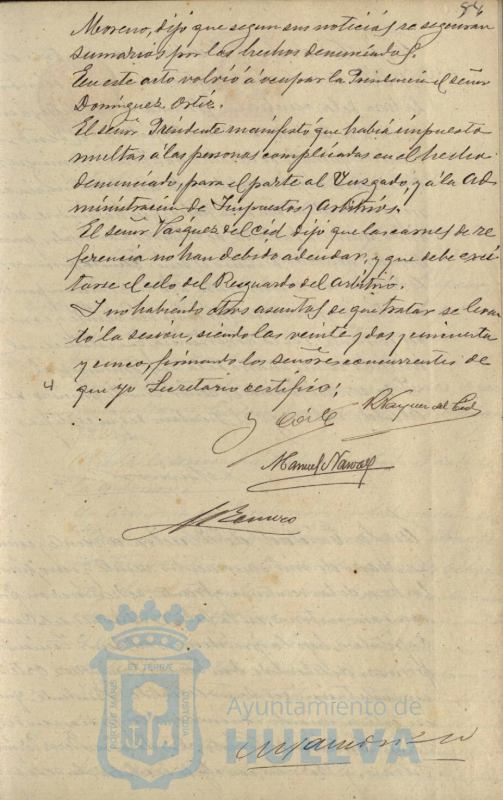 Moreno, dijo que segun sus noticias se seguiran
sumarios por los hechos denunciados.
En este acto volvió á ocupar la Presidencia el señor
Dominguez Ortiz.
El señor Presidente manifestó que habia impuesto
multas á las personas complicadas en el hecho
denunciado, para el parte al Juzgado, y á la Ad-
ministración de Impuestos y Arbitrios.
El señor Vasquez del Cid dijo que las carnes de re-
ferencia no han debido adeudar, y que debe exci-
tarse el celo del Resguardo del Arbitrio.
Y no habiendo otros asuntos de que tratar se levan
tó la sesión, siendo las veinte y dos y cincuenta
y cinco, firmando los señores concurrentes de
que yo Secretario certifico;
R Vazquez del Cid
Manuel
PORTUS MARIS ET TERRÆ CUSTODIA
Ayuntamiento de
HUELVA